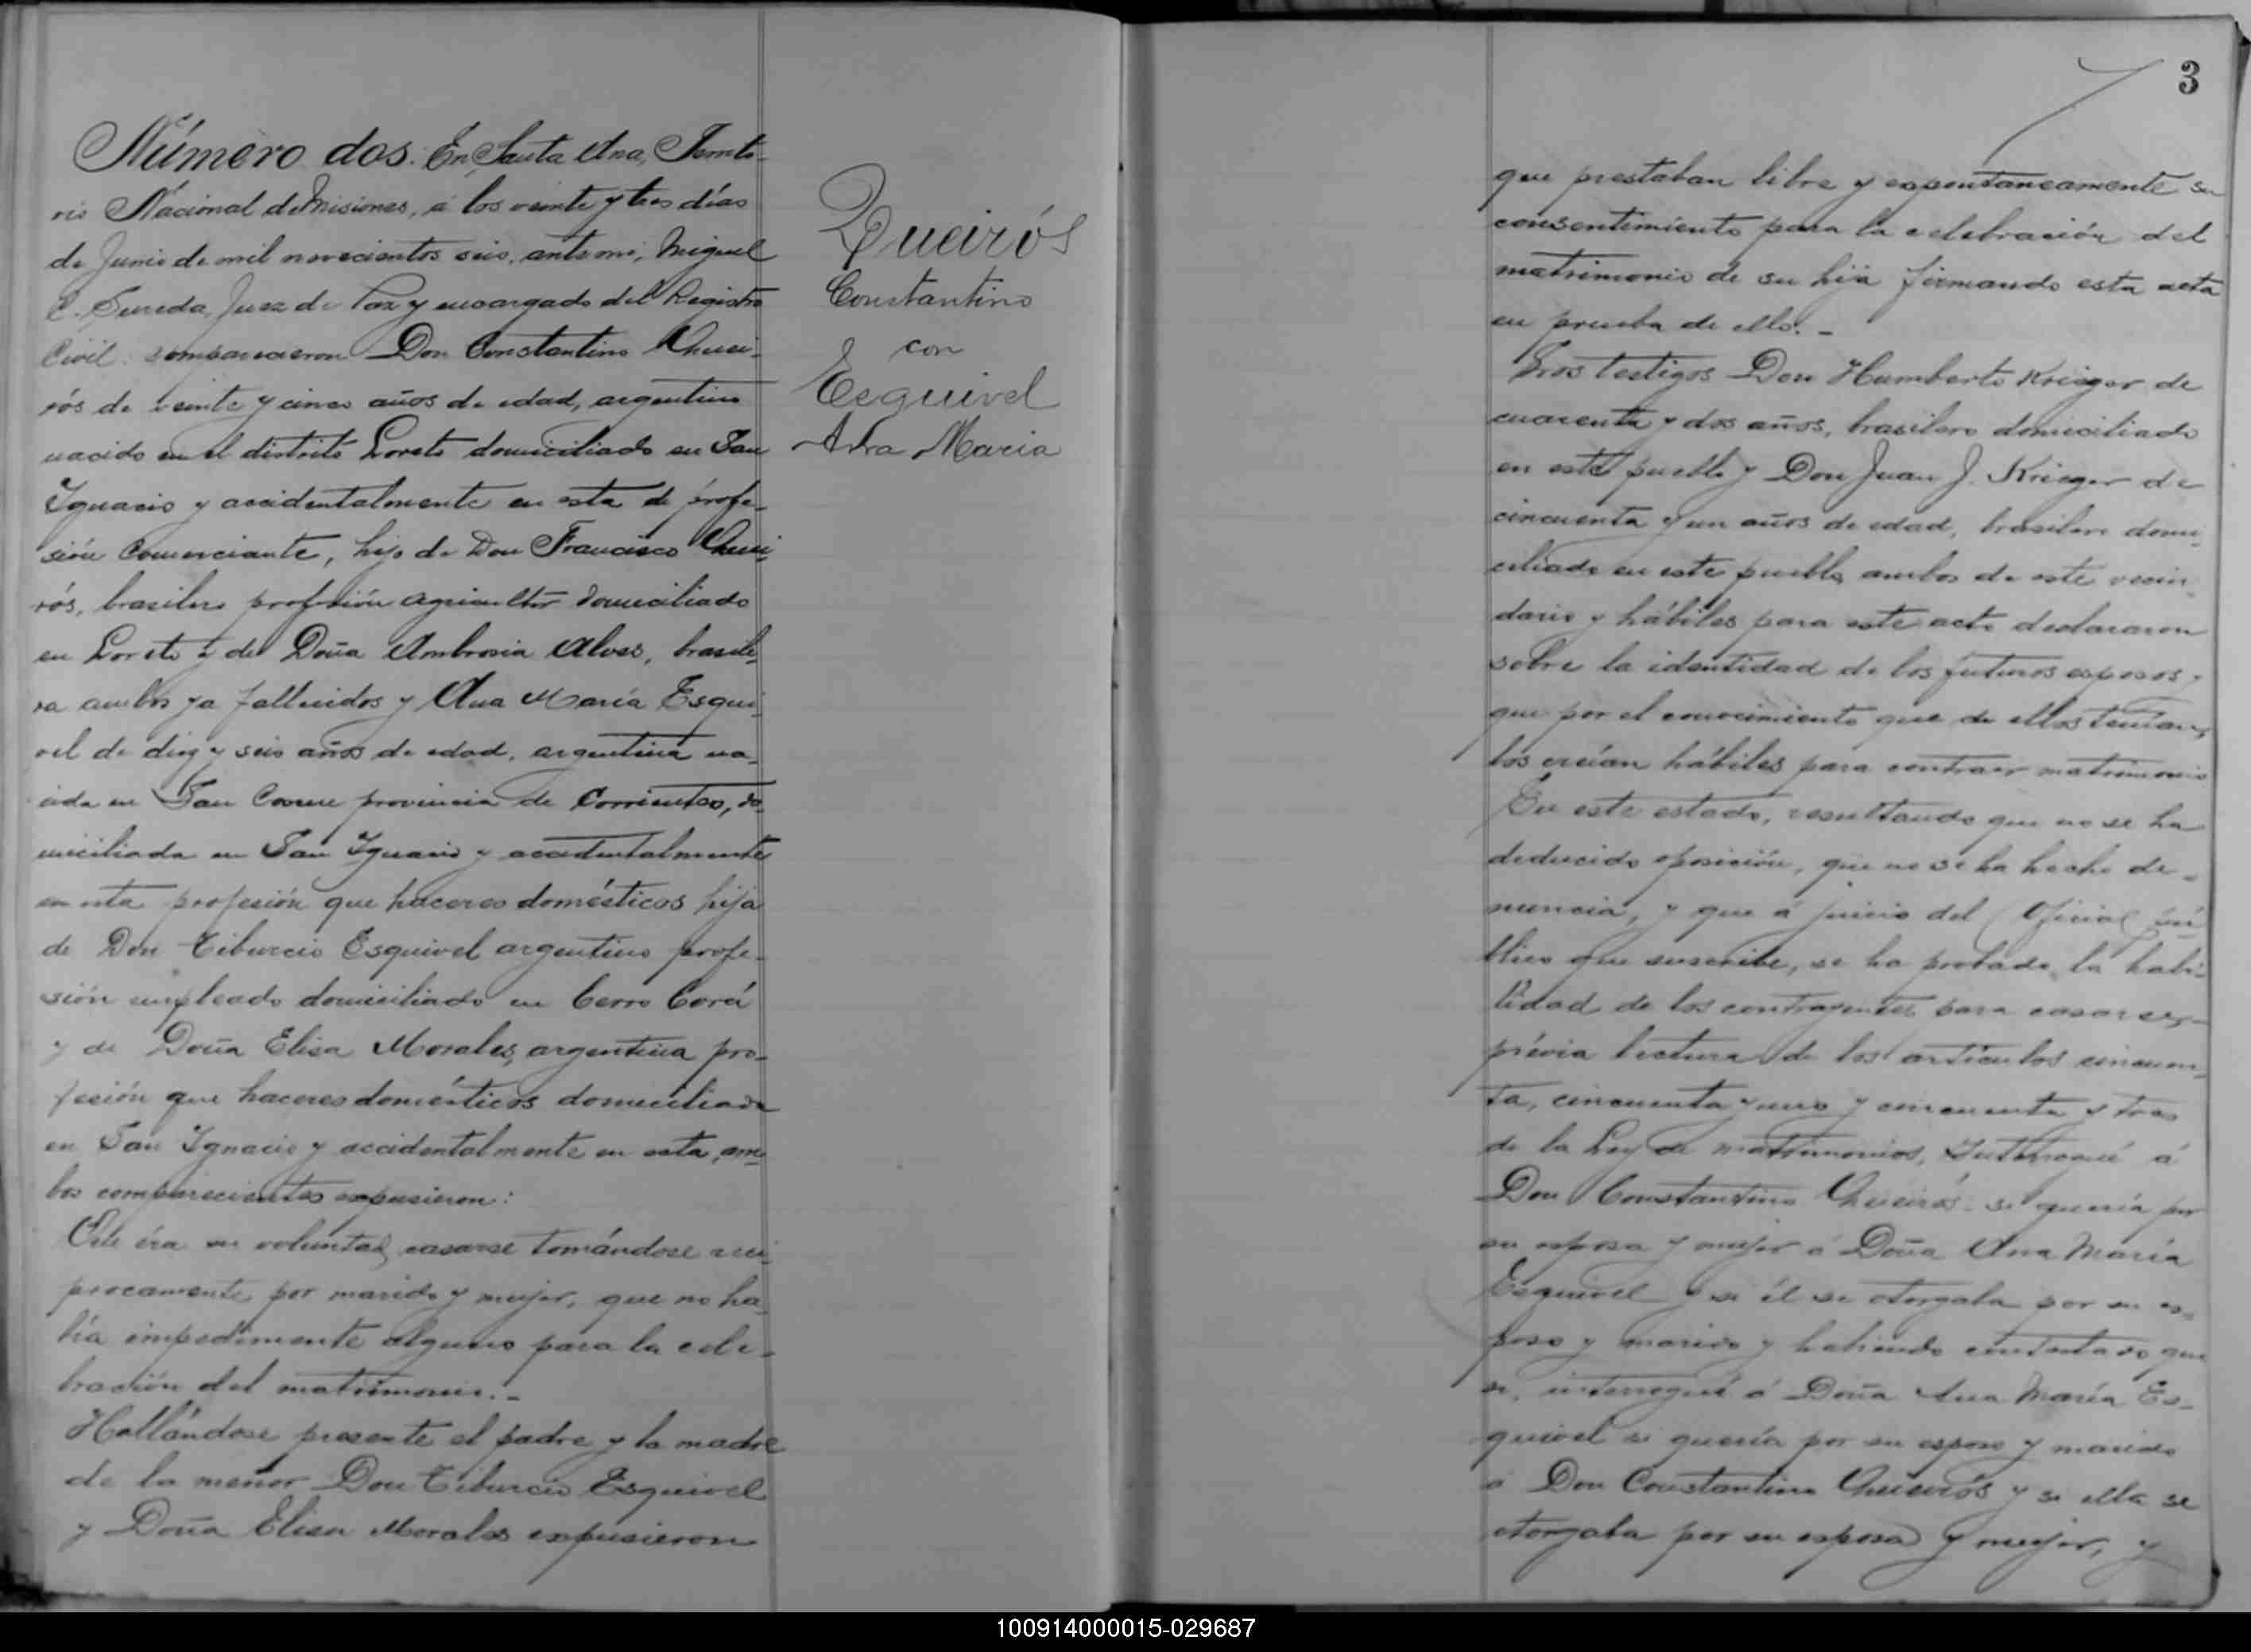 Número dos. En Santa Ana, Territo-
rio Nacional de Misiones, á los veinte y tres días
de Junio de mil novecientos seis, ante mi, Miguel
C. Juez de Paz y encargado del Registro
Civil: comparecieron Don Constantino Quei-
rós de veinte y cinco años de edad, argentino
nacido en el distrito Loreto domiciliado en San
Ignacio y accidentalmente en esta de profe-
sión Comerciante, hijo de Don Francisco Quei-
rós, brasilero profesión agricultor domiciliado
en Loreto y de Doña Ambrosia Alves, brasile-
ra ambos ya fallecidos y Ana María Esqui-
vel de diez y seis años de edad, argentina na-
cida en San Cosme provincia de Corrientes, do-
miciliada en San Ignacio y accidentalmente
en esta profesión que haceres domésticos hija
de Don Tiburcio Esquivel argentino profe-
sión empleado domiciliado en Cerro Corá
y de Doña Elisa Morales, argentina pro-
fesión que haceres domésticos domiciliada
en San Ignacio y accidentalmente en esta, am-
bos comparecientes expusieron:
Que éra su voluntad casarse tomándose reci-
procamente por marido y mujer, que no ha-
bía impedimento alguno para la cele-
bración del matrimonio.-
Hallándose presente el padre y la madre
de la menor Don Tiburcio Esquivel
y Doña Elisa Morales expusieron
Queirós
Constantino
con
Esquivel
Ana Maria
3
que prestaban libre y expontaneamente su
consentimiento para la celebración del
matrimonio de su hija firmando esta acta
en prueba de ello.-
Los testigos Don Humberto Krieger de
cuarenta y dos años, brasilero domiciliado
en este pueblo y Don Juan J. Krieger de
cincuenta y un años de edad, brasilero domi-
ciliado en este pueblo, ambos de este vecin-
dario y hábiles para este acto declararon
sobre la identidad de los futuros esposos y
que por el conocimiento que de ellos tenían,
los creían hábiles para contraer matrimonio
En este estado, resultando que no se ha
deducido oposición, que no se ha hecho de-
nuncia, y que á juicio del Oficial pú-
blico que suscribe, se ha probado la habi-
lidad de los contrayentes para casarse,
prévia lectura de los artículos cincuen-
ta, cincuenta y uno y cincuenta y tres
de la Ley de matrimonios, Interrogué á
Don Constantino Queirós si quería por
su esposa y mujer á Doña Ana María
Esquivel y si él se otorgaba por su es-
poso y marido y habiendo contestado que
si, interrogué á Doña Ana María Es-
quivel si quería por su esposo y marido
á Don Constantino Queirós y si ella se
otorgaba por su esposa y mujer, y
100914000015-029687